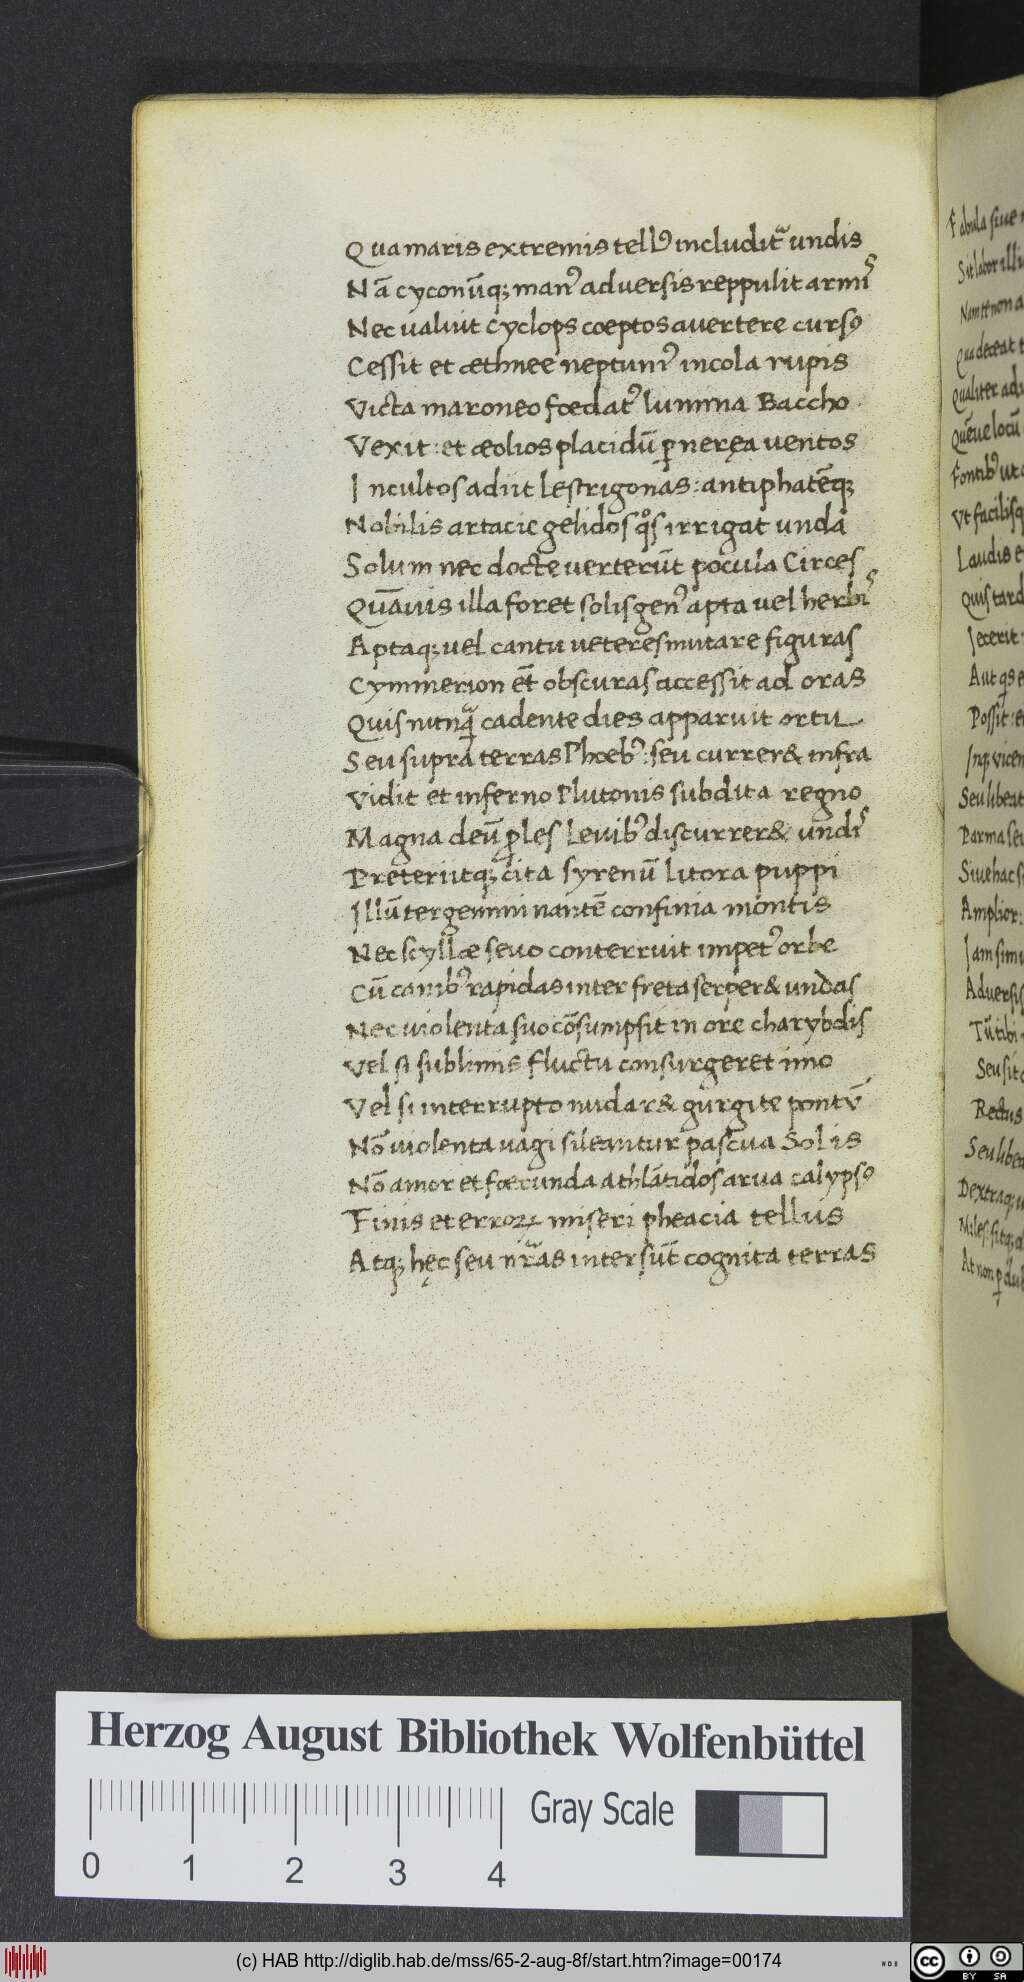 Qua maris extremis tellꝰ includitᷣ undis
Nā cyconūqꝫ manꝰ adversis reppulit armis
Nec valuit cyclops cœptos avertere cursꝰ
Cessit et æthnee neptunꝰ incola rupis
Victa maroneo fœdatꝰ lumina Baccho
Vexit: et æolios placidū ꝑ neręa ventos
Incultos adiit Lestrigonas: antiphatēqꝫ
Nobilis artacie gelidos qͦs irrigat unda
Solum nec docte verterūt pocula Circes
Quāuis illa foret solis genꝰ apta vel herbis
Aptaqꝫ vel cantu veteres mutare figuras
Cymmerion et̄ obscuras accessit ad oras
Quis nunqᷓ cadente dies apparuit ortu
Seu supra terras Phœbꝰ: seu currer& infra
Vidit et inferno Plutonis subdita regno
Magna deū ꝓles Leuibꝰ discurrer& undis
Preteriitqꝫ cita syrenū litora puppi
Illū tergemini nantē confinia montis
Nec scyllæ sevo conterruit impetꝰ orbe
Cū canibꝰ rapidas inter freta serper& undas
Nec violenta suo cōsumpsit in ore charybdis
Vel si sublimis fluctu consurgeret imo
Vel si interrupto nudar& gurgite pontū
Nō violenta vagi sileantur pascua Solis
Nō amor et fœcunda athlātidos arva calypsꝰ
Finis et erroꝝ miseri pheacia tellus
Atqꝫ hęc seu nr̄as inter sūt cognita terras
Fabula sive
Sit labor illi
Nam te non a
Qua deceat t
Qualiter adv
Quēve locū
Fontibꝰ ut
Ut facilisq
Laudis e
Quis tard
Jecerit
Possit: e
Inqꝫ vicen
Seu libeat
Parma seu
Sive hac s
Amplior:
Jam simu
Adversis
Tū tibi
Seu sit
Rectus
Seu libea
Dextraqꝫ u
Miles: sitqꝫ
At non ꝑ dub
Herzog August Bibliothek Wolfenbüttel
0 1 2 3 4
Gray Scale
(c) HAB http://diglib.hab.de/mss/65-2-aug-8f/start.htm?image=00174
WDB
cc BY SA